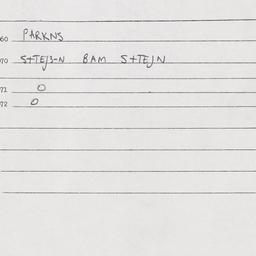 60 PARKNS
70 S+TEJ3-N BAM S+TEJN
71 0
72 0